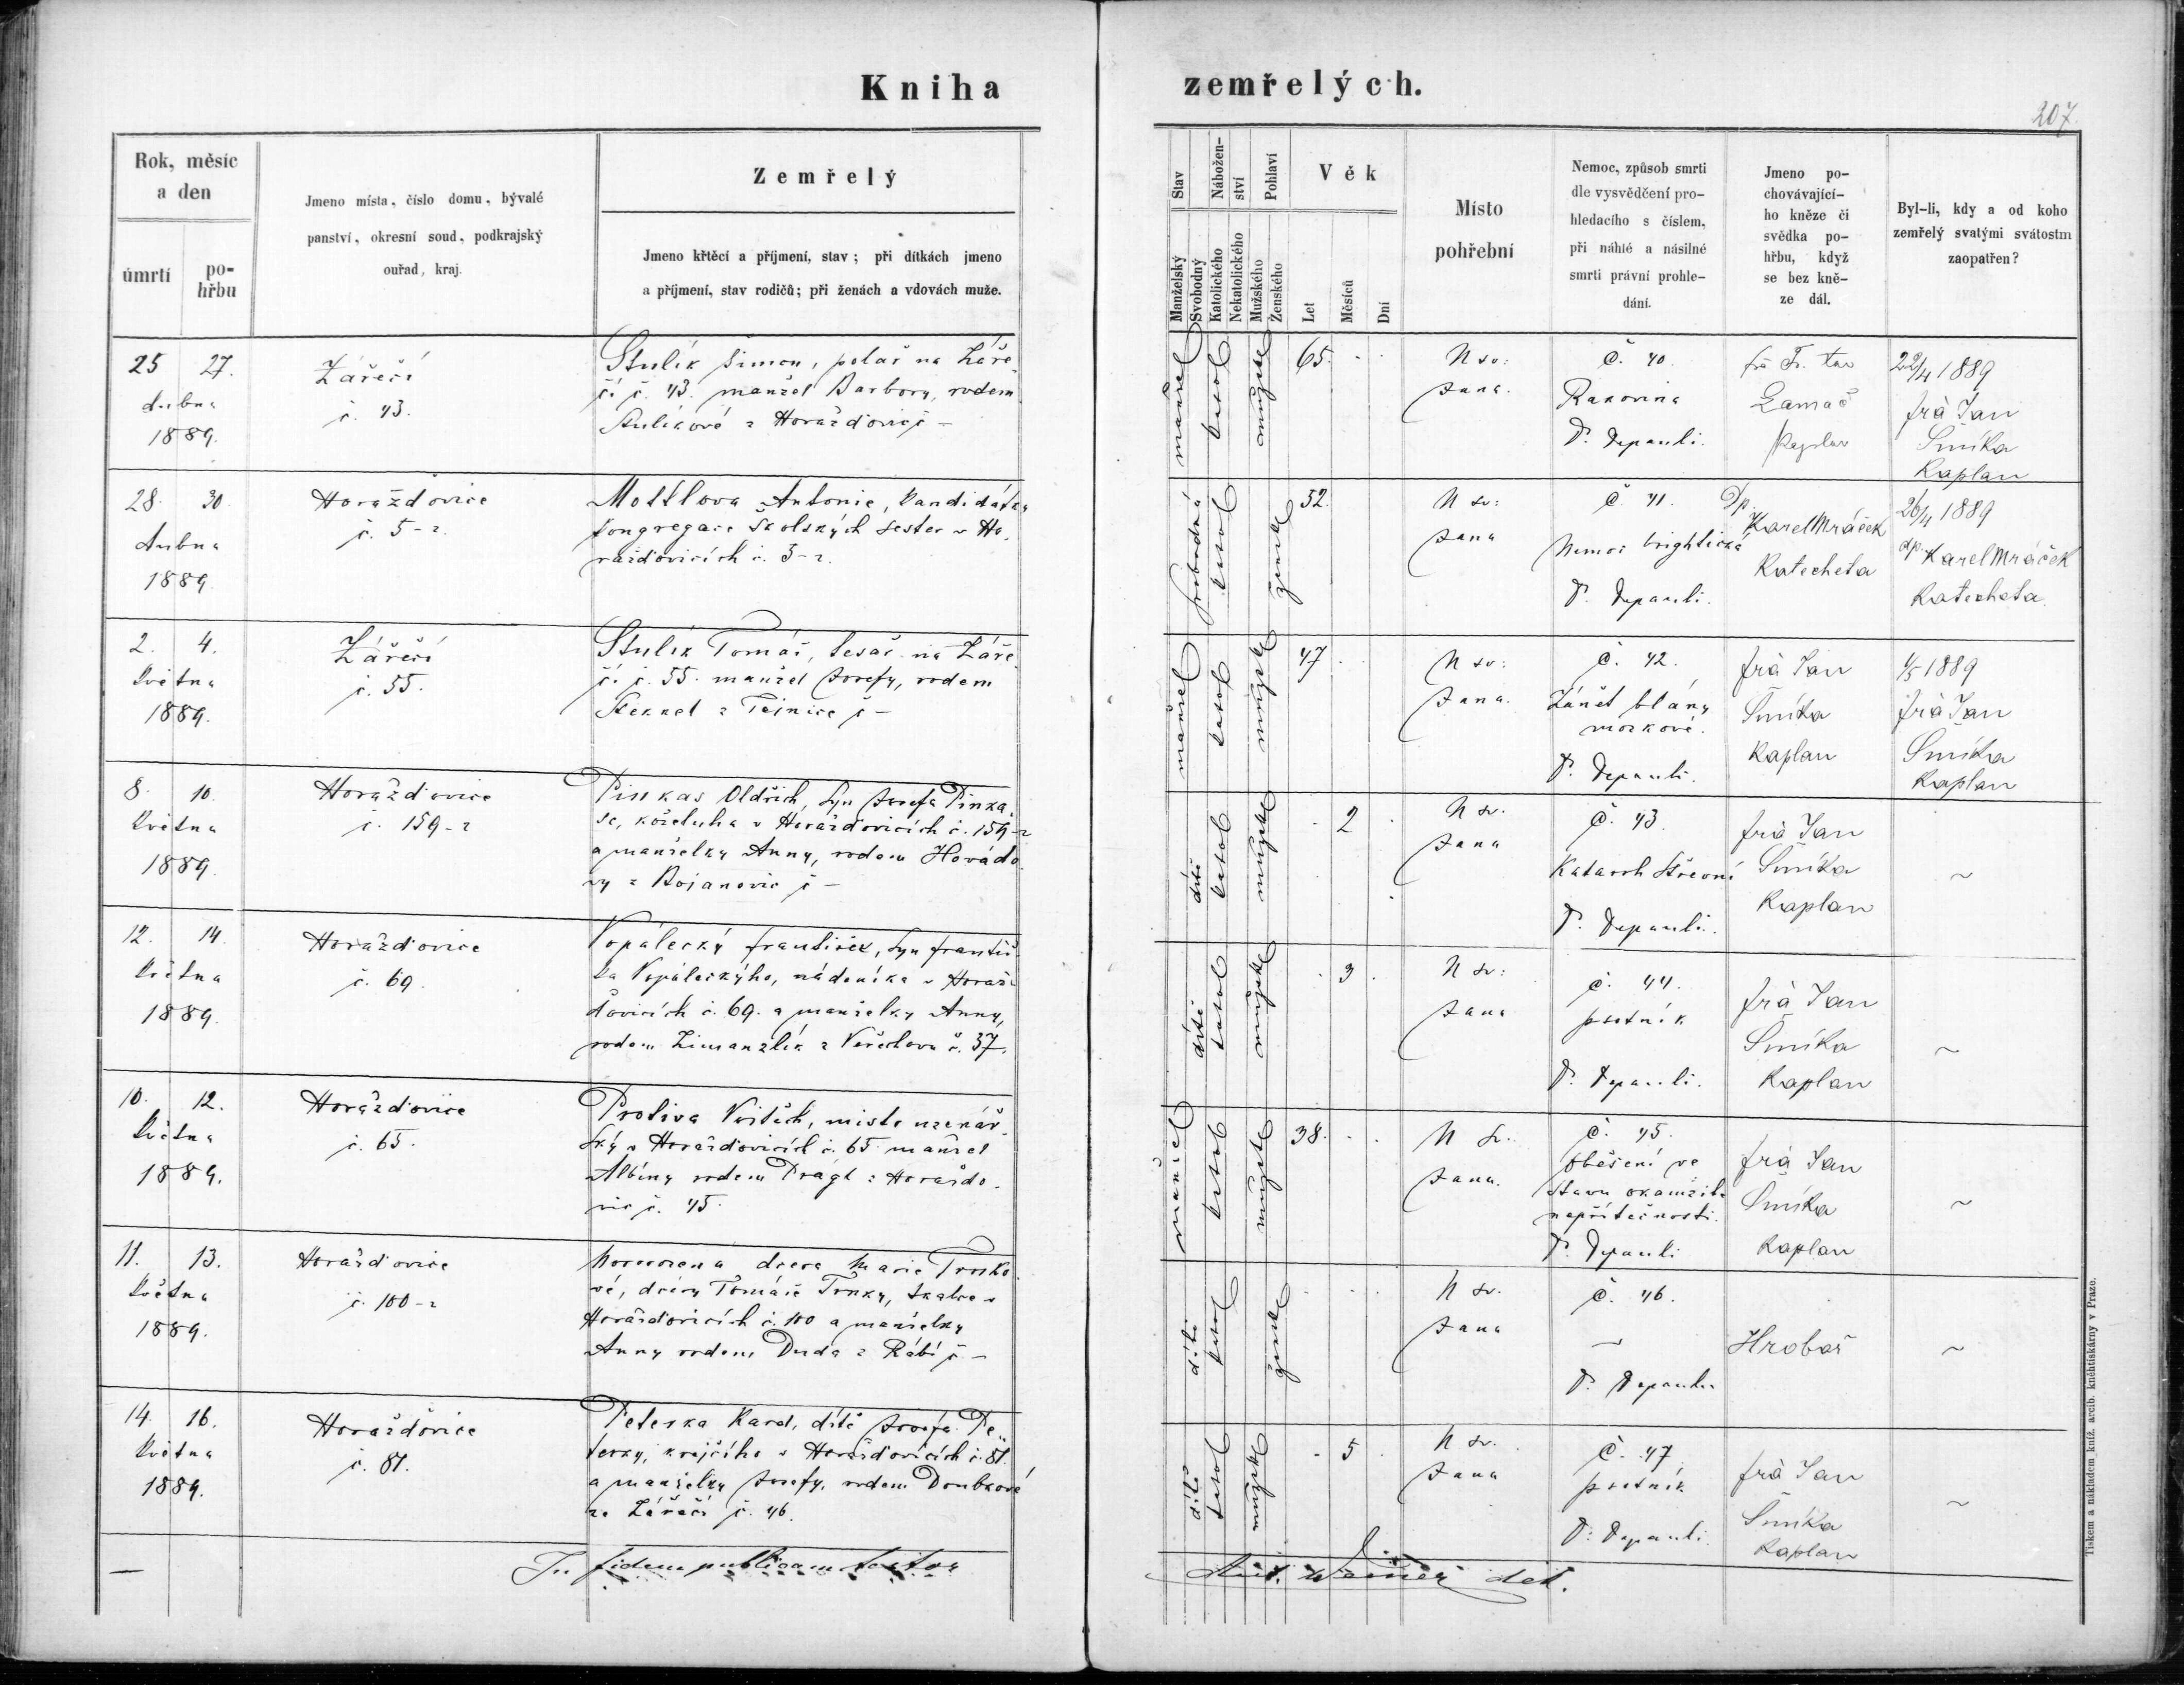 Kniha
zemřelých.
207.
Rok, měsíc
a den
úmrtí
po-
hřbu
Jmeno místa, číslo domu, bývalé
panství, okresní soud, podkrajský
ouřad, kraj.
Zemřelý
Jmeno křtěcí a příjmení, stav; při dítkách jmeno
a příjmení, stav rodičů; při ženách a vdovách muže.
Stav
Nábožen-
ství
Pohlaví
Věk
Manželský
Svobodný
Katolického
Nekatolického
Mužského
Ženského
Let
Měsíců
Dní
Místo
pohřební
Nemoc, způsob smrti
dle vysvědčení pro-
hledacího s číslem,
při náhlé a násilné
smrti právní prohle-
dání.
Jmeno po-
chovávající-
ho kněze či
svědka po-
hřbu, když
se bez kně-
ze dál.
Byl-li, kdy a od koho
zemřelý svatými svátostm
zaopatřen?
25 27.
dubna
1889.
Zářečí
č. 43.
Stulík Šimon, polař na Záře
čí č. 43. manžel Barbory, rodem
Stulíkové z Horažďovic č –
manžel
katol
mužské
65.
N sv:
Jana.
č. 40.
Rakovina
D. Depauli.
frà Fr. 
Lamač
Kaplan
22/4 1889
frà Jan
Šmíka
Kaplan
28. 30
dubna
1889
Horažďovice
č. 5-2.
Mottlova Antonie, kandidátka
kongregace školských sester v Ho-
ražďovicích č. 3-2.
svobodná
katol
ženské
52.
N sv:
Jana
č. 41.
Nemoc brightická
D. Depauli.
Dp.
Karel Mráček
Katecheta
26/4 1889
dp. Karel Mráček
Katecheta
2. 4.
Května
1889.
Zářečí
č. 55.
Stulík Tomáš, tesař na Záře
čí č. 55. manžel Josefy, rodem
z Tejnice č –
manžel
katol
mužské
47
N sv:
Jana.
č. 42.
Zánět blány
mozkové.
D. Depauli.
frà Jan
Šmíka
Kaplan
1/5 1889
frà Jan
Šmíka
Kaplan
8. 10.
Května
1889.
Horažďovice
č. 159-2
Pinkas Oldřich, syn Josefa Pinka
se, koželuha v Horažďovicích č. 159-2
a manželky Anny, rodem Hovádo
vy z Bojanovic č –
dítě
katol
mužské
2
N sv.
Jana
č. 43.
Katarrh střevní
D. Depauli.
frà Jan
Šmíka
Kaplan
~
12. 14.
Května
1889.
Horažďovice
č. 69.
Vopálecký František, syn Františ
ka Vopáleckýho, nádeníka v Horaž
ďovicích č. 69. a manželky Anny,
rodem Zimanzlík z Veřechova č. 37.
dítě
katol
mužské
3
N sv:
Jana
č. 44.
psotník
D. Depauli.
frà Jan
Šmíka
Kaplan
~
10. 12.
Května
1889.
Horažďovice
č. 65.
Protiva Vojtěch, mistr uzenář
ský v Horažďovicích č. 65 manžel
Albíny rodem Prágl z Horažďo-
vic č. 45.
manžel
katol
mužské
38.
N sv.
Jana.
č. 45.
oběšení ve
stavu okamžité
nepřítečnosti.
D. Depauli
frà Jan
Šmíka
Kaplan
~
11. 13.
Května
1889.
Horažďovice
č. 100-2
dcera Marie Trnko
vé, dcery Tomáše Trnky, tkalce v
Horažďovicích č. 100 a manželky
Anny rodem Duda z Rábí č –
dítě
katol
ženské
N sv.
Jana
č. 46.
–
D. Depauli
Hrobař
~
14. 16.
Května
1889.
Horažďovice
č. 81.
Peterka Karel, dítě Josefa Pe-
terky, krejčího v Horažďovicích č. 81.
a manželky Josefy, rodem Doubkové
ze Zářečí č. 46.
dítě
katol
mužské
5
N sv.
Jana
č. 47.
psotník
D. Depauli.
frà Jan
Šmíka
Kaplan
~
In fidem publicam testor
Ant. Weiner děk.
Tiskem a nákladem kníž. arcib. knihtiskárny v Praze.